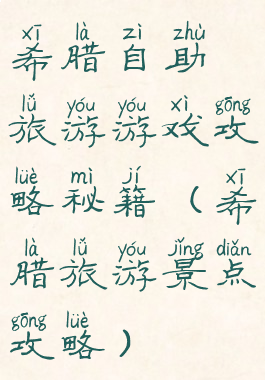 xī là zì zhù
希腊自助
lǚ yóu yóu xì gōng
旅游游戏攻
lüè mì jí xī
略秘籍（希
là lǚ yóu jǐng diǎn
腊旅游景点
gōng lüè
攻略）